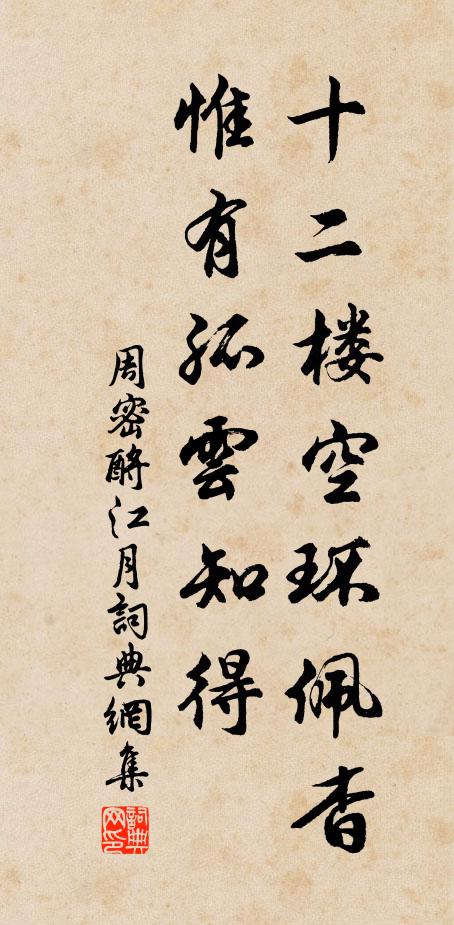 十二楼空环佩杳
惟有孤雲知得
周密酹江月詞典網集
詞典网印